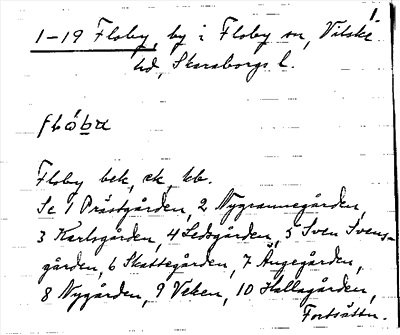 1.
1-19 Floby, by i Floby sn, Vilske
hd, Skaraborgs l.
flȯ́ba
Floby bek, ek, kb.
Se 1 Prästgården, 2 Nygrannegården,
3 Karlsgården, 4 Ledsgården, 5 Sven Svens-
gården, 6 Skattegården, 7 Ängegården,
8 Nygården, 9 Veken, 10 Hallagården,
Fortsättn.